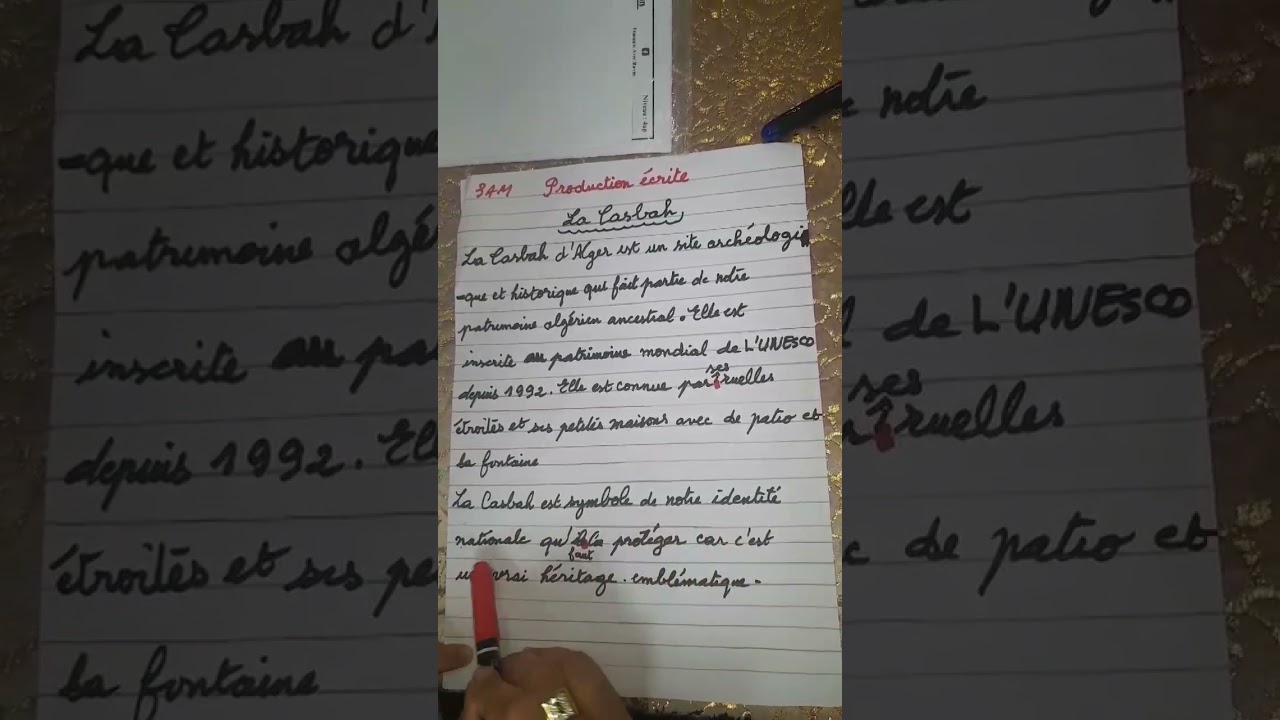 3AM Production écrite
La Casbah
La Casbah d'Alger est un site archéologi
-que et historique qui fait partie de notre
patrimoine algérien ancestral. Elle est
inscrite au patrimoine mondial de L'UNESCO
depuis 1992. Elle est connue par ses ruelles
étroités et ses petités maisons avec de patio et
la fontaine
La Casbah est symbole de notre identité
nationale qu'il faut la protéger car c'est
un vrai héritage. emblématique.
Niveau: 4ap